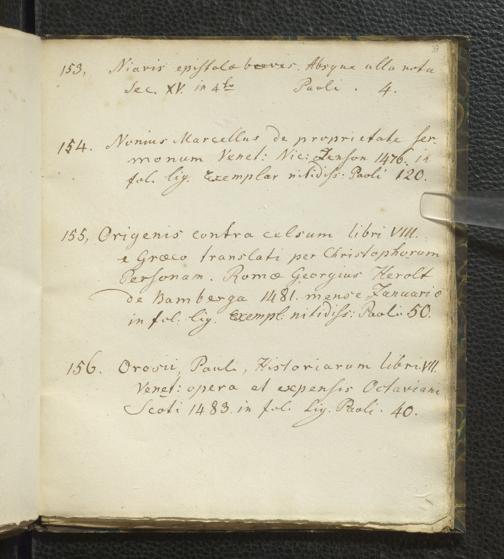 153, Niavis epistolæ breves. Absque ulla nota
Sec. XV. in 4to Paoli . 4.
154. Nonius Marcellus de proprietate ser-
monum Venet: Nic: Jenson 1476. in
fol. lig. Exemplar nitidiss: Paoli 120.
155, Origenis contra celsum libri VIII.
e Græco translati per Christophorum
Personam. Romæ Georgius Herolt
de Bamberga 1481. mense Januario
in fol. lig. Exempl. nitidiss: Paoli 50.
156. Orosii, Pauli, Historiarum libri VII.
Venet: opera et expensis Octaviani
Scoti 1483. in fol. lig. Paoli . 40.